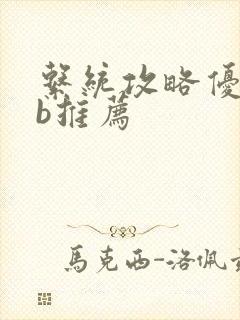 繫統攻略優
b推薦
馬克西-洛佩茲